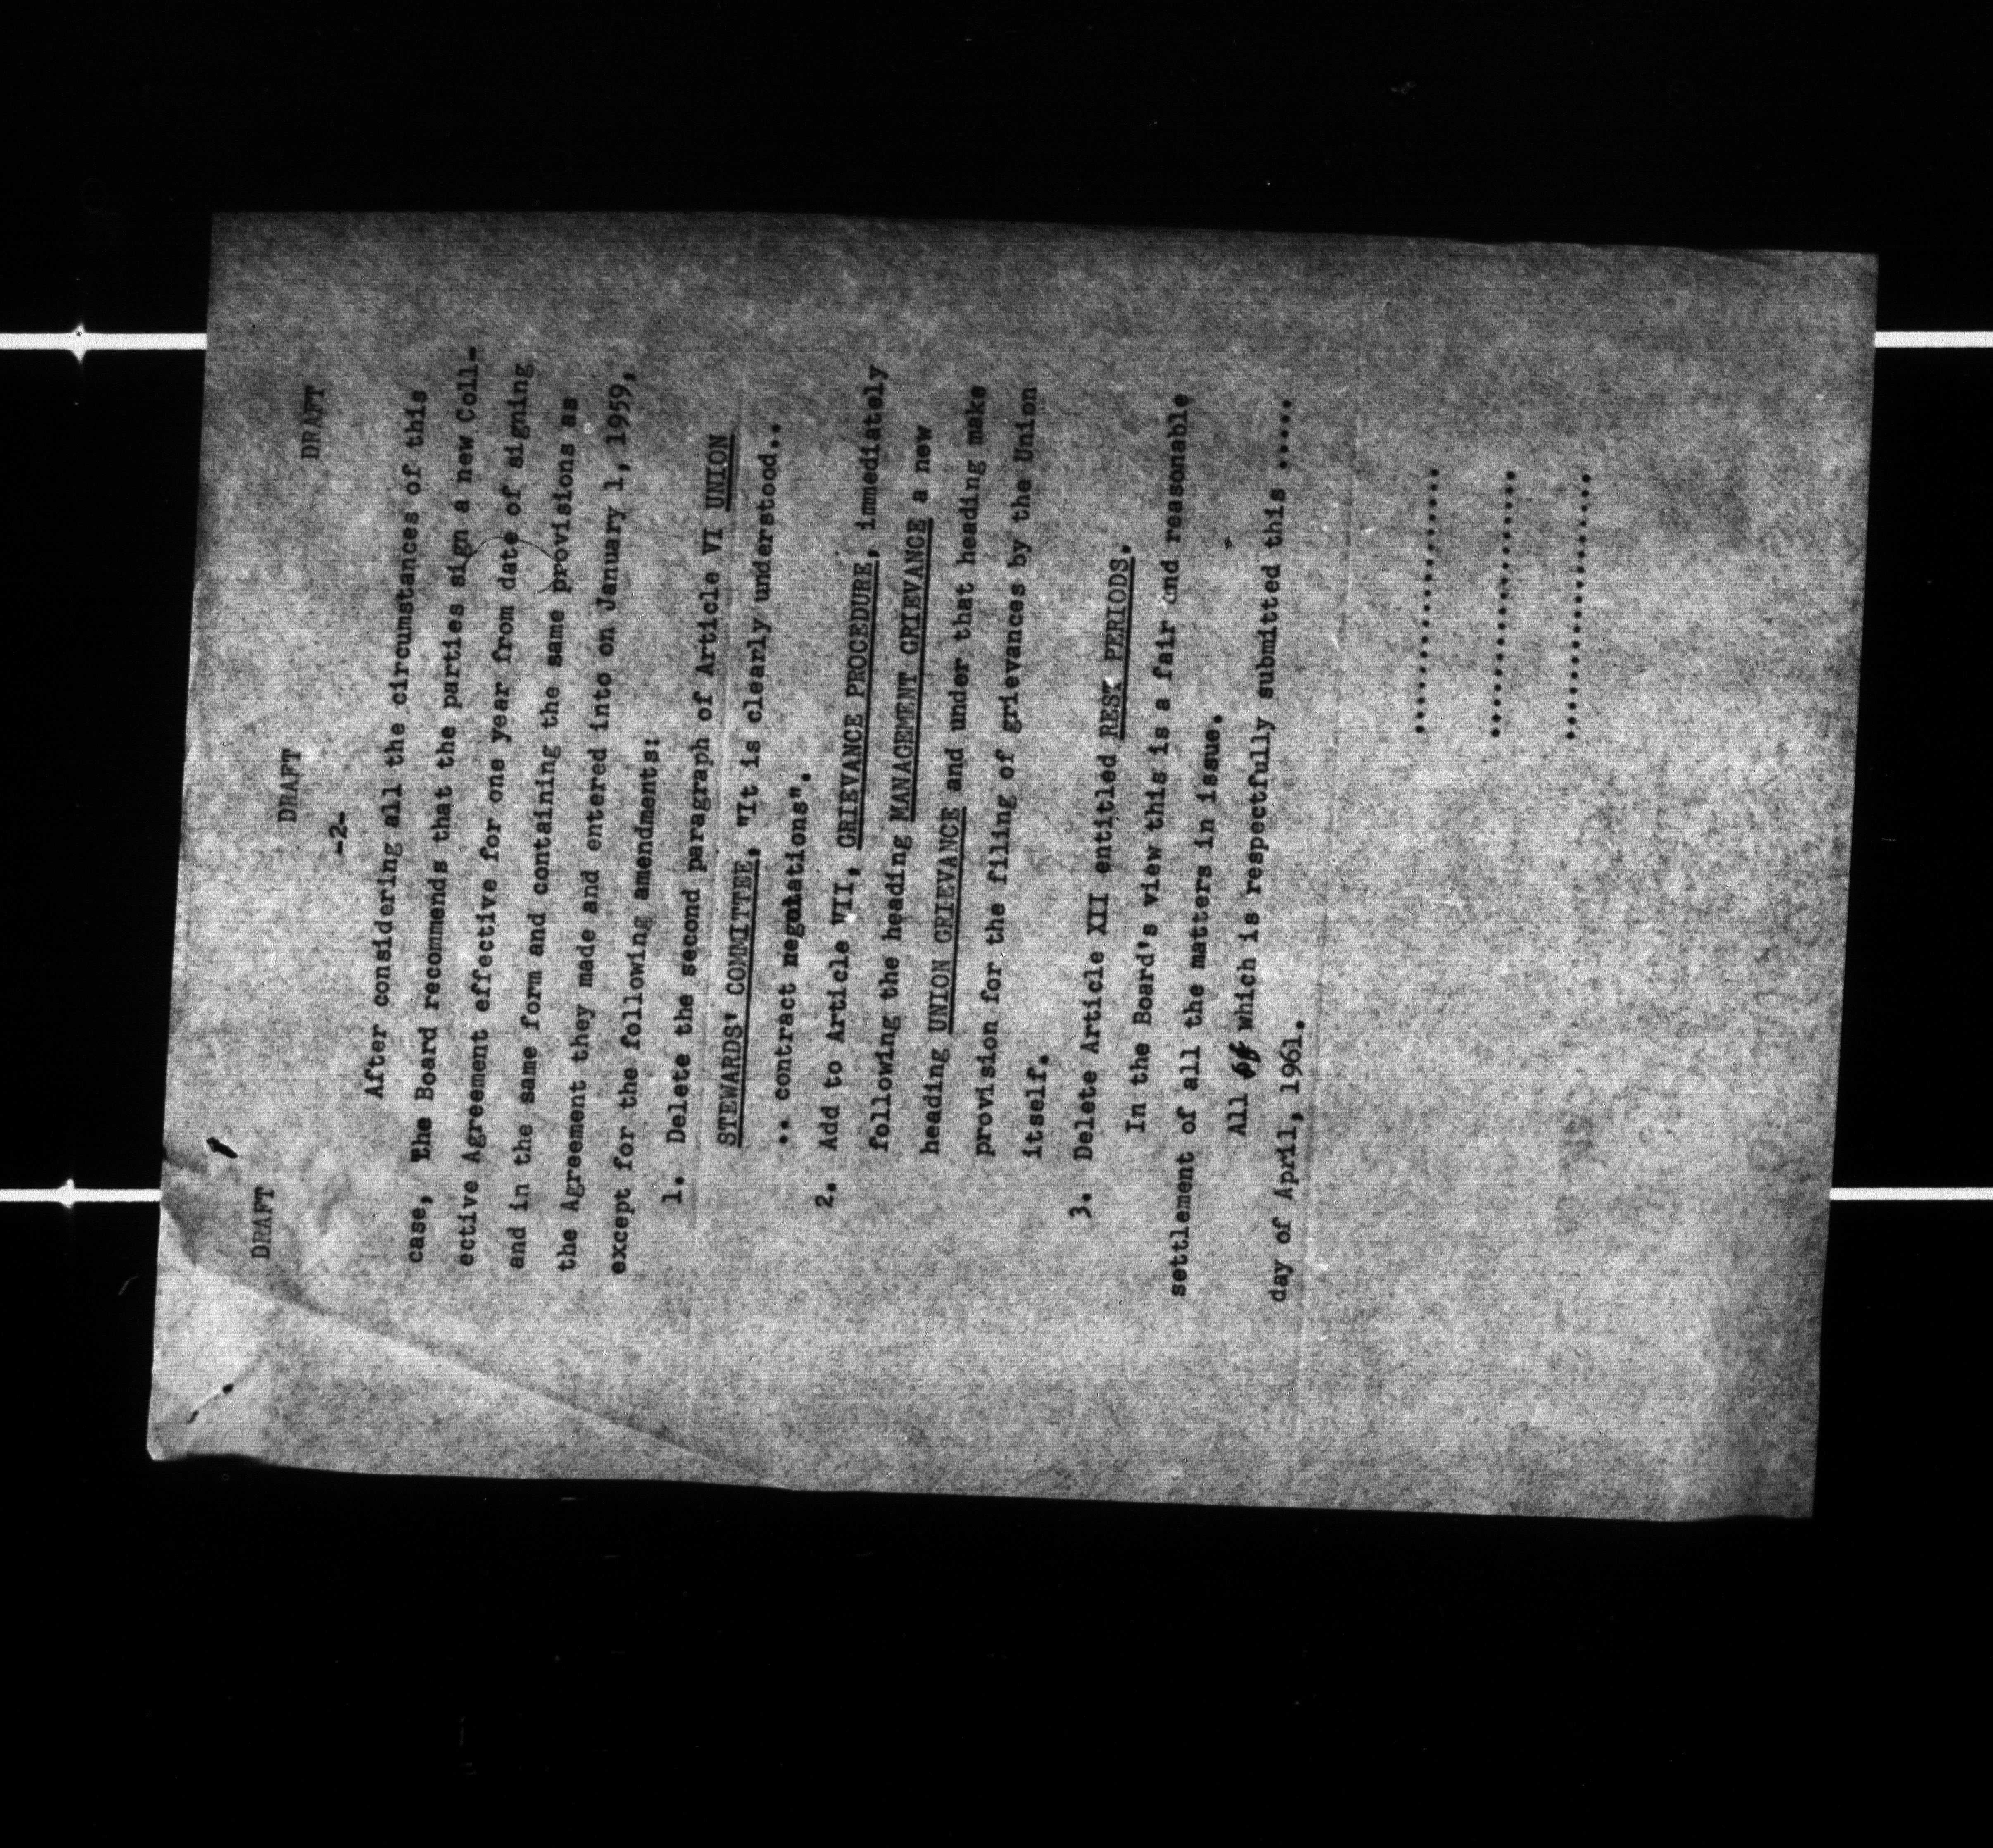 DRAFT DRAFT DRAFT
-2-
After considering all the circumstances of this
case, the Board recommends that the parties sign a new Coll-
ective Agreement effective for one year from date of signing
and in the same form and containing the same provisions as
the Agreement they made and entered into on January 1, 1959,
except for the following amendments:
1. Delete the second paragraph of Article VI UNION
STEWARDS' COMMITTEE, "It is clearly understood..
.. contract negotations".
2. Add to Article VII, GRIEVANCE PROCEDURE, immediately
following the heading MANAGEMENT GRIEVANCE a new
heading UNION GRIEVANCE and under that heading make
provision for the filing of grievances by the Union
itself.
3. Delete Article XII entitled REST PERIODS.
In the Board's view this is a fair and reasonable
settlement of all the matters in issue.
All of which is respectfully submitted this .....
day of April, 1961.
.......................
.......................
.......................